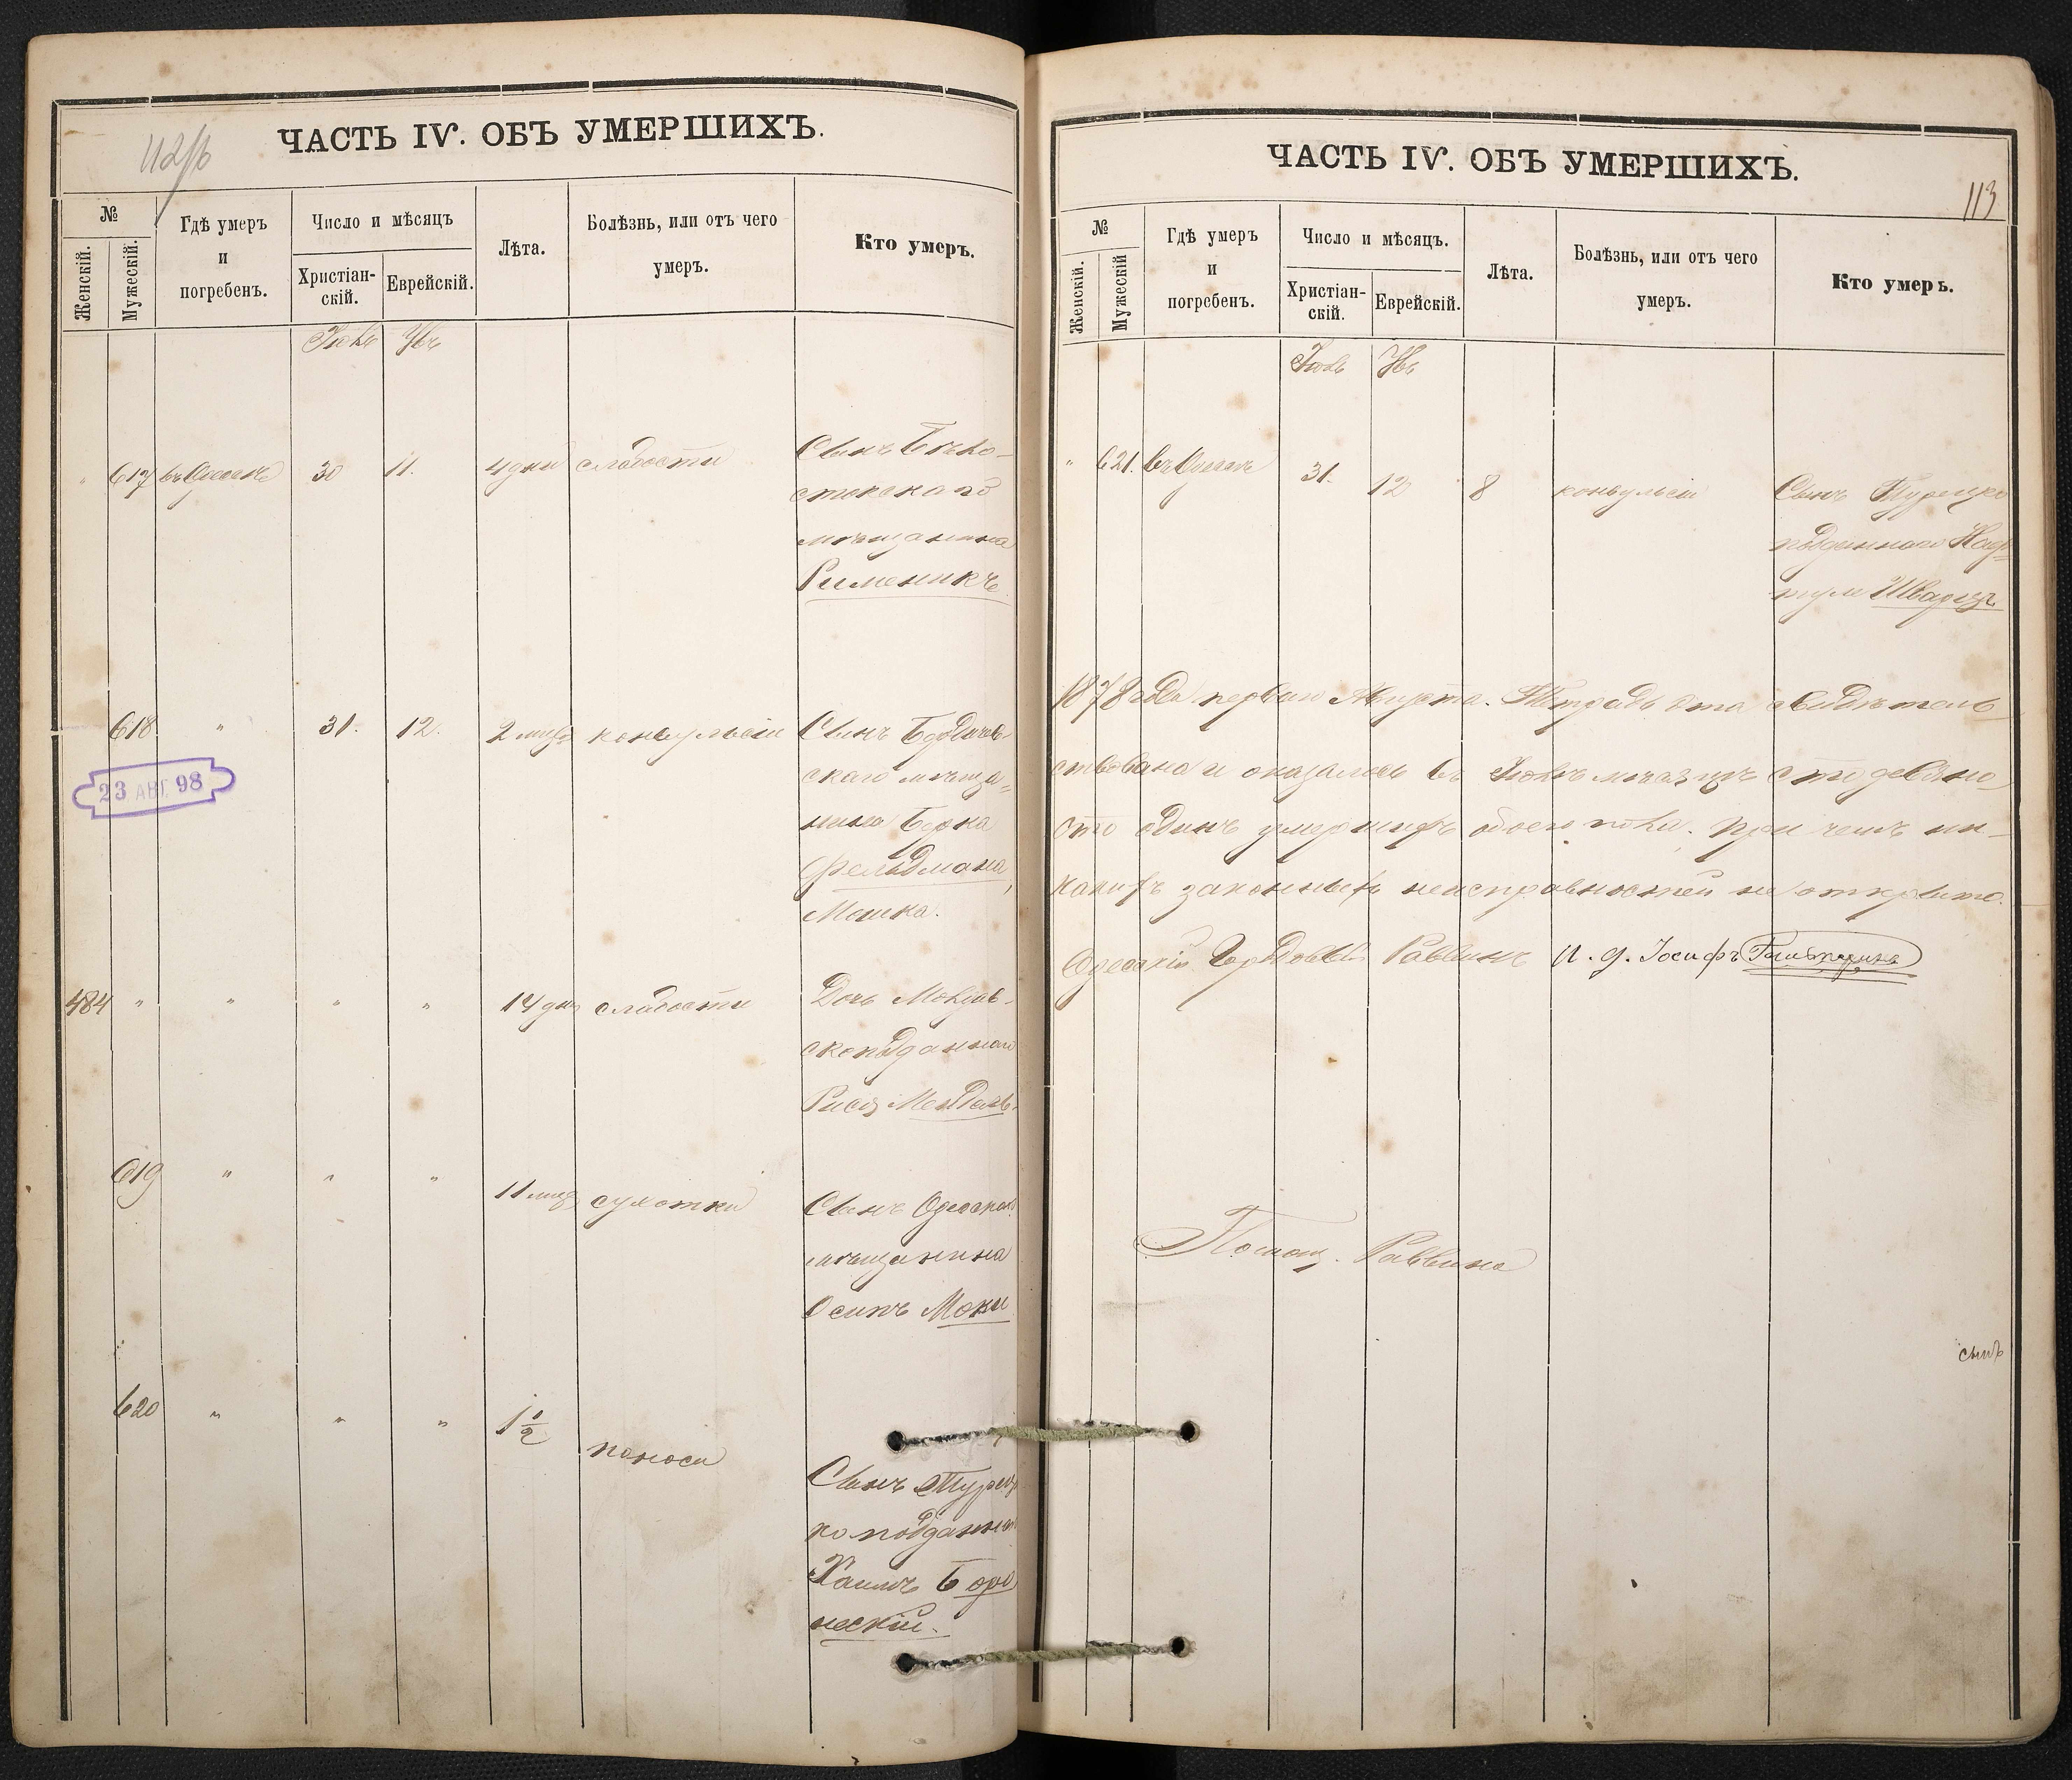 112/б
ЧАСТЬ IV. ОБЪ УМЕРШИХЪ.
№
Женскій.
Мужескій.
Гдѣ умеръ
и
погребенъ.
Число и мѣсяцъ
Христіан-
скій.
Еврейскій.
Лѣта.
Болѣзнь, или отъ чего
умеръ.
Кто умеръ.
617 въ Одессѣ 30 11. 4 дни слабости Сынъ Бѣло-
стокскаго
мѣщанина
Рименикъ
618 " 31. 12. 2 конвульсіи Сынъ Бердичев-
скаго мѣща-
нина Берка
Фельдмана,
Мошка.
23 АВГ. 98
484 " " " " 14 слабости Дочь
скоподданнаго
619 " " " 11 сухотки Сынъ
мѣщанина
Осипъ
620 " " " 1 1/2 поноса
Сынъ Турец-
коподданнаго
Хаимъ
ЧАСТЬ IV. ОБЪ УМЕРШИХЪ.
113
№
Женскій.
Мужескій
Гдѣ умеръ
и
погребенъ.
Число и мѣсяцъ.
Христіан-
скій.
Еврейскій.
Лѣта.
Болѣзнь, или отъ чего
умеръ.
Кто умеръ.
" 621. въ Одессѣ 31. 12 8 конвульсіи Сынъ Турецко
подданнаго
Шварцъ
1878 года перваго Августа. Тетрадь эта свидѣтель-
ствована и оказалось въ Іюлѣ мѣсяцѣ сто девяно-
сто одинъ умершихъ обоего пола. При чемъ ни-
какихъ законныхъ неисправностей не открыто.
Одесскій Городовой Раввинъ и. д. Іосифъ
Помощ. Раввина
сынъ